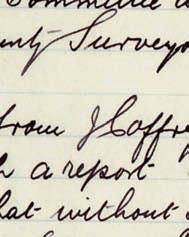 Committee
unty Surveyo
from J Caffrey
h a report
hat without